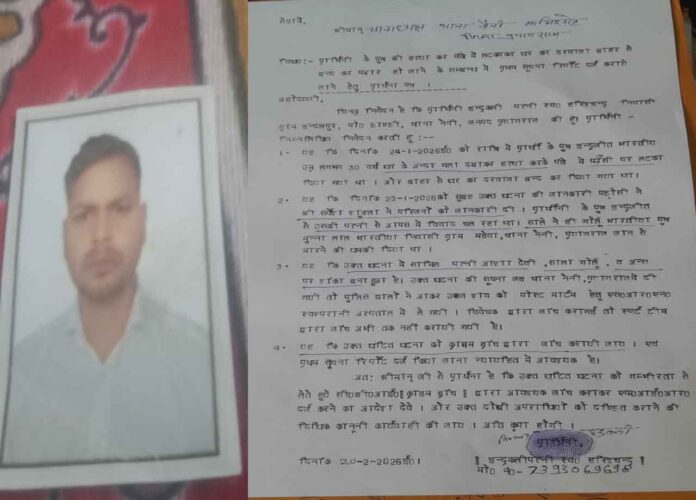 सेवामें,
श्रीमान् थानाध्यक्ष थाना नैनी कमिश्नरेट
जिला प्रयागराज
विषय:- प्रार्थिनी के पुत्र की हत्या कर पंखे में लटकाकर घर का दरवाजा बाहर से
बन्द कर फरार हो जाने के सम्बन्ध में प्रथम सूचना रिपोर्ट दर्ज कराये
जाने हेतु प्रार्थना पत्र ।
महोदयजी,
विनम्र निवेदन है कि प्रार्थिनी इन्द्रकली पत्नी स्व० हरिश्चन्द्र निवासी
ग्राम इन्दलपुर, पो० डाण्डी, थाना नैनी, जनपद प्रयागराज की हूं। प्रार्थिनी -
निम्नलिखित निवेदन करती हूं :--
1- यह कि दिनांक 24-1-2026ई० को रात्रि में प्रार्थी के पुत्र इन्द्रजीत भारतीय
उम्र लगभग 30 वर्ष घर के अन्दर गला दबाकर हत्या करके पंखे में फाँसी पर लटका
दिया गया था । और बाहर से घर का दरवाजा बन्द कर दिया गया था।
2- यह कि दिनांक 25-1-2026को सुबह उक्त घटना की जानकारी पड़ोसी ने
श्री शुक्ला ने परिजनों को जानकारी दी । प्रार्थिनी के पुत्र इन्द्रजीत
से उसकी पत्नी से आपस में विवाद चल रहा था। साले ने श्री गोलू भारतीया पुत्र
मुन्ना लाल भारतीया निवासी ग्राम महेवा, थाना नैनी, प्रयागराज जान से
मारने की धमकी दिया था ।
3- यह कि उक्त घटना में शामिल पत्नी आशा देवी , साला गोलू , व अन्य
पर शंका बना हुआ है। उक्त घटना की सूचना जब थाना नैनी, प्रयागराज में दी
गयी तो पुलिस वालों ने आकर उक्त शव को पोस्ट मार्टम हेतु एस०आर०एन०
स्वरूपरानी अस्पताल में ले गयी । विवेचक द्वारा जांच करायी गई तो टीम
द्वारा जांच अभी तक नहीं करायी गयी है।
4- यह कि उक्त घटित घटना को क्राइम ब्रांच द्वारा जांच करायी जाय । एवं
प्रथम सूचना रिपोर्ट दर्ज किया जाना न्यायहित में आवश्यक है।
अत: श्रीमान् जी से प्रार्थना है कि उक्त घटित घटना को गम्भीरता से
लेते हुये सी०बी०आई० क्राइम ब्रांच द्वारा आवश्यक जांच कराकर एफ०आई०आर०
दर्ज करने का आदेश देवें । और उक्त दोषी अपराधियों को दण्डित कराने की
विधिक कानूनी कार्यवाही की जाय । अति कृपा होगी ।
प्रार्थिनी
इन्द्रकली पत्नी स्व० हरिश्चन्द्र
दिनांक 20-2-2026ई०।
मो० नं०- 7393069698